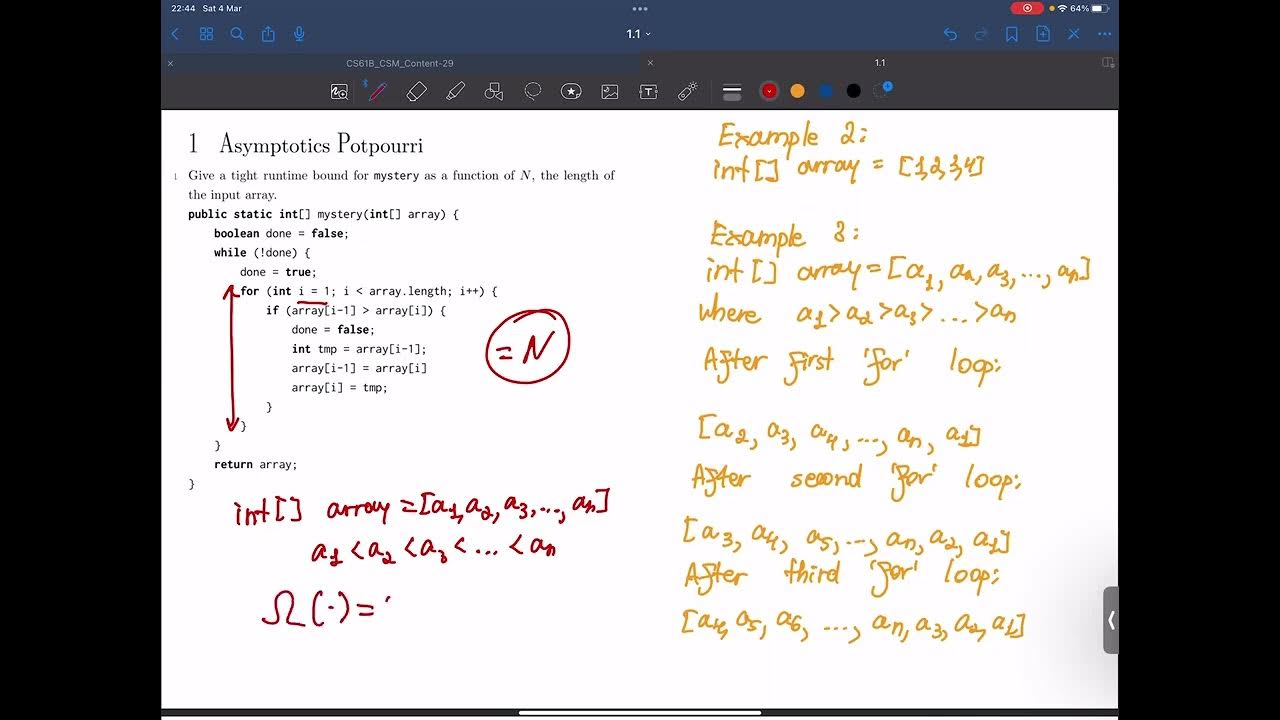 22:44 Sat 4 Mar
64%
1.1
CS61B_CSM_Content-29
1.1
1 Asymptotics Potpourri
1 Give a tight runtime bound for mystery as a function of N, the length of
the input array.
public static int[] mystery(int[] array) {
boolean done = false;
while (!done) {
done = true;
for (int i = 1; i < array.length; i++) {
if (array[i-1] > array[i]) {
done = false;
int tmp = array[i-1];
array[i-1] = array[i]
array[i] = tmp;
}
}
}
return array;
}
= N
int[] array = [a1, a2, a3, ..., an]
a1 < a2 < a3 < ... < an
Ω(·) =
Example 2:
int[] array = [1,2,3,4]
Example 3:
int[] array = [a1, a2, a3, ..., an]
where a1 > a2 > a3 > ... > an
After first 'for' loop:
[a2, a3, a4, ..., an, a1]
After second 'for' loop:
[a3, a4, a5, ..., an, a2, a1]
After third 'for' loop:
[a4, a5, a6, ..., an, a3, a2, a1]